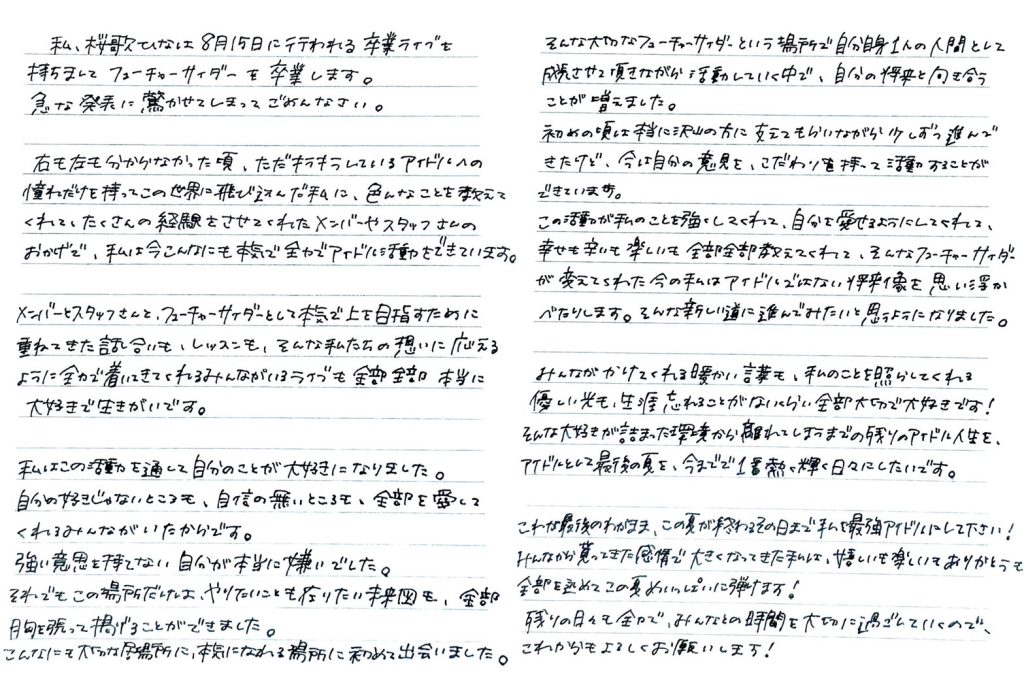 私、桜歌ひなは8月15日に行われる卒業ライブを
持ちまして フューチャーサイダーを卒業します。
急な発表に驚かせてしまってごめんなさい。
右も左も分からなかった頃、ただキラキラしているアイドルへの
憧れだけを持ってこの世界に飛び込んだ私に、色んなことを教えて
くれて、たくさんの経験をさせてくれたメンバーやスタッフさんの
おかげで、私は今こんなにも本気で全力でアイドル活動をできています。
メンバーとスタッフさんと、フューチャーサイダーとして本気で上を目指すために
重ねてきた話し合いも、レッスンも、そんな私たちの想いに応える
ように全力で着いてきてくれるみんながいるライブも全部全部 本当に
大好きで生きがいです。
私はこの活動を通して自分のことが大好きになりました。
自分の好きじゃないところも、自信の無いところも、全部を愛して
くれるみんながいたからです。
強い意思を持てない自分が本当に嫌いでした。
それでもこの場所だけは、やりたいことも在りたい未来図も、全部
胸を張って掲げることができました。
こんなにも大切な居場所に、本気になれる場所に初めて出会いました。
そんな大切なフューチャーサイダーという場所で自分自身1人の人間として
成長させて頂きながら活動していく中で、自分の将来と向き合う
ことが増えました。
初めの頃は本当に沢山の方に支えてもらいながら少しずつ進んで
きたけど、今は自分の意見を、こだわりを持って活動することが
できています。
この活動が私のことを強くしてくれて、自分を愛せるようにしてくれて、
幸せも辛いも楽しいも全部全部教えてくれて、そんなフューチャーサイダー
が変えてくれた今の私はアイドルではない将来像を思い浮か
べたりします。そんな新しい道に進んでみたいと思うようになりました。
みんながかけてくれる暖かい言葉も、私のことを照らしてくれる
優しい光も、生涯忘れることがないくらい全部大切で大好きです！
そんな大好きが詰まった環境から離れてしまうまでの残りのアイドル人生を、
アイドルとして最後の夏を、今までで1番熱く輝く日々にしたいです。
これが最後のわがまま、この夏が終わるその日まで私を最強アイドルにして下さい！
みんなから貰ってきた感情で大きくなってきた私は、嬉しいも楽しいもありがとうも
全部を込めてこの夏めいっぱいに弾けます！
残りの日々も全力で、みんなとの時間を大切に過ごしていくので、
これからもよろしくお願いします！